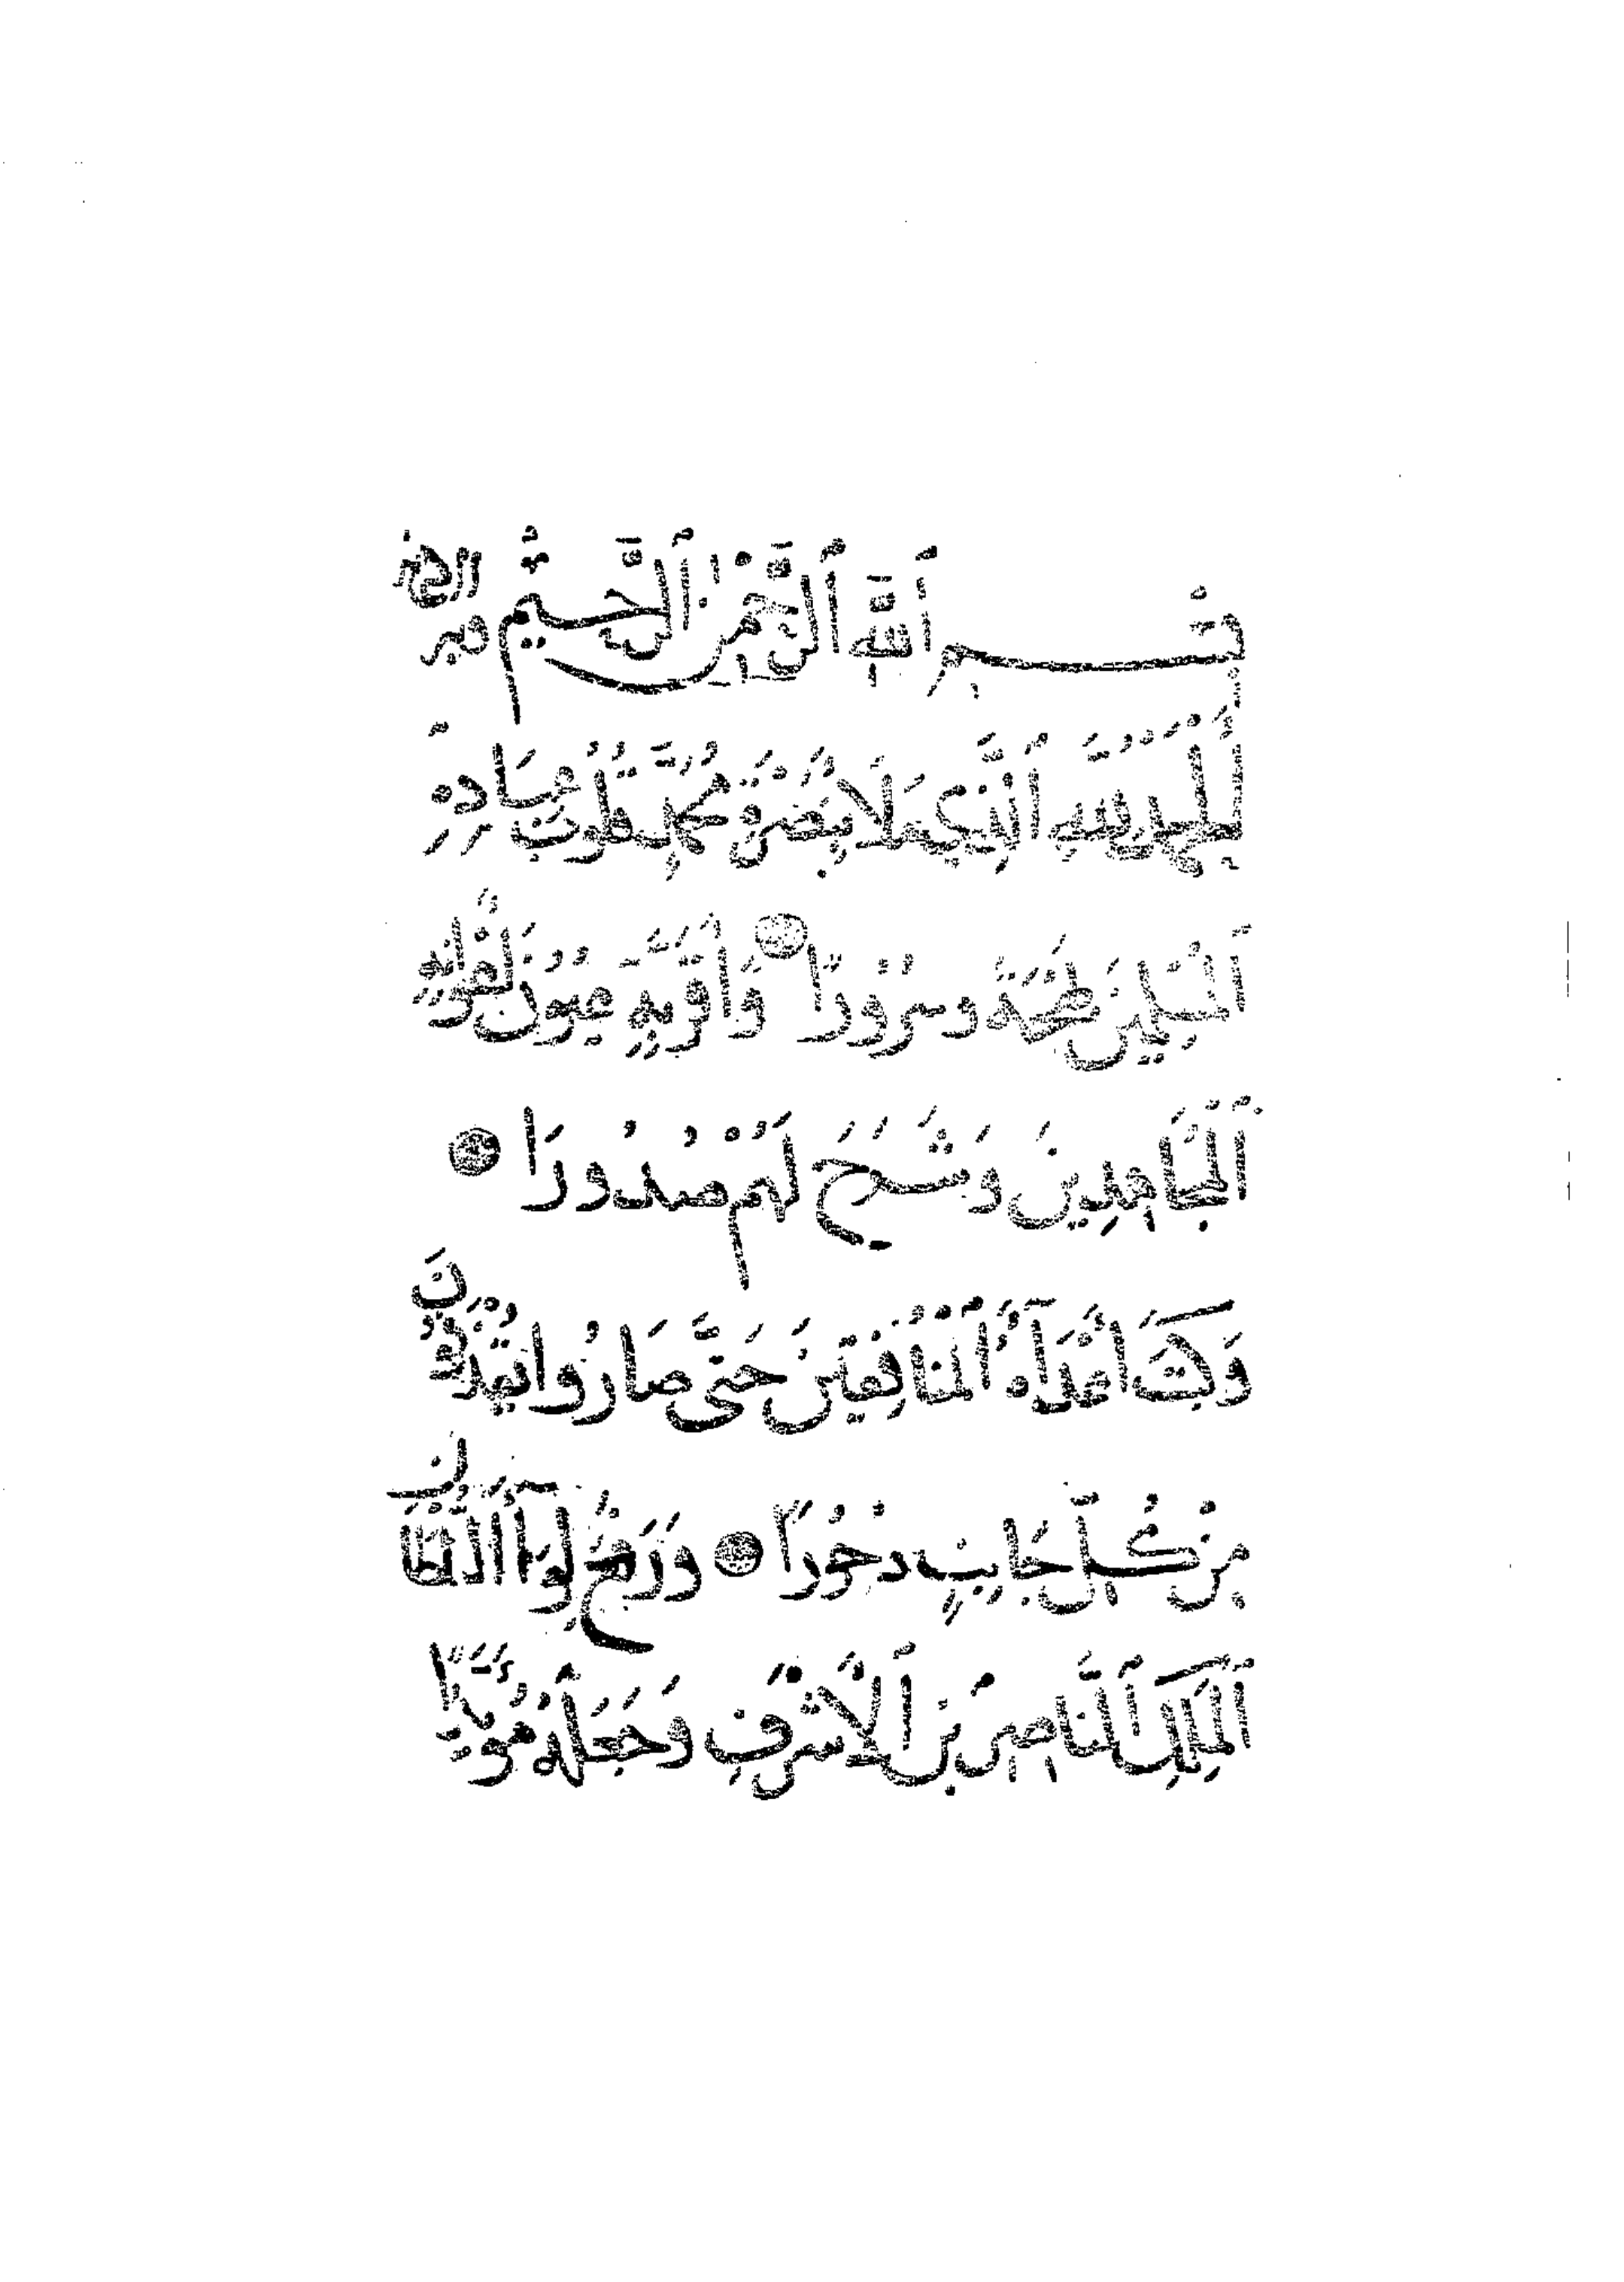 بِسْمِ اللَّهِ الرَّحْمَٰنِ الرَّحِيمِ وبه
اَلْحَمْدُ لِلَّهِ الَّذِي مَلَأَ بِنَصْرِهِ مُحَمَّدٍ قُلُوبَ عِبَادِهِ
الْمُسْلِمِينَ وسُرُورًا وَأَقَرَّ بِهِ عُيُونَ
الْمُجَاهِدِينَ وَشَرَحَ لَهُمْ صُدُورًا
وَكَبَتَ أَعْدَاءَهُ الْمُنَافِقِينَ حَتَّى صَارُوا يُقْذَفُونَ
مِنْ كُلِّ جَانِبٍ دُحُورًا وَرَفَعَ لِوَاءَ السُّلْطَانِ
الْمَلِكِ النَّاصِرِ بْنِ الْأَشْرَفِ وَجَعَلَهُ مُؤَيَّدًا